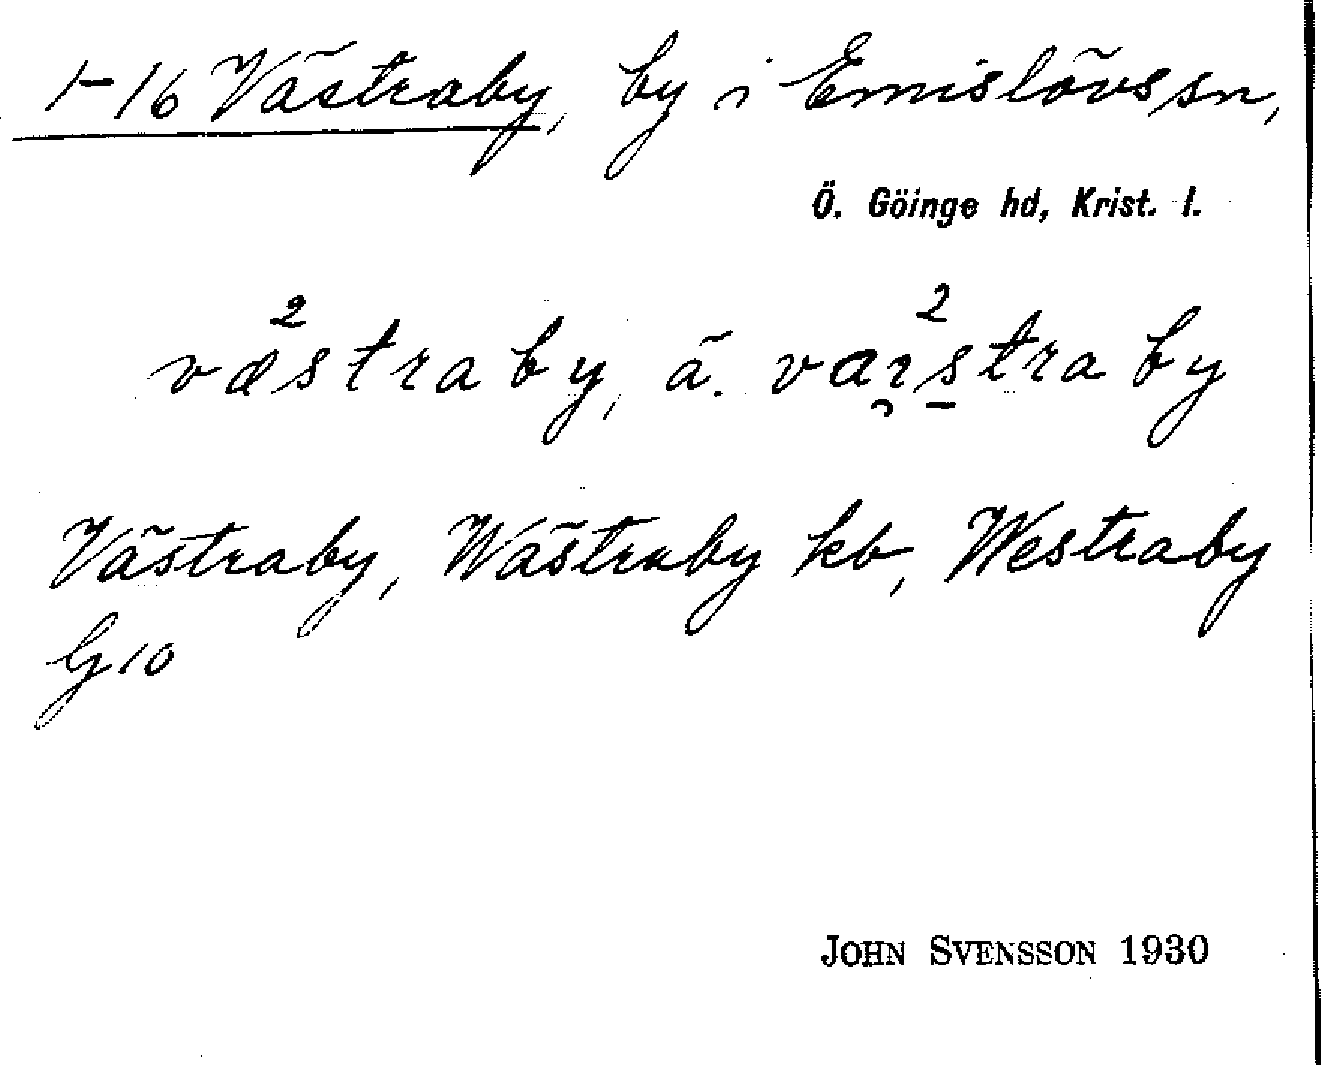 1–16 Västraby, by i Emislövs sn,
Ö. Göinge hd, Krist. l.
væ²straby, ä. vaɪ̯s̱²traby
Västraby, Wästraby kb, Westraby
G 10
JOHN SVENSSON 1930